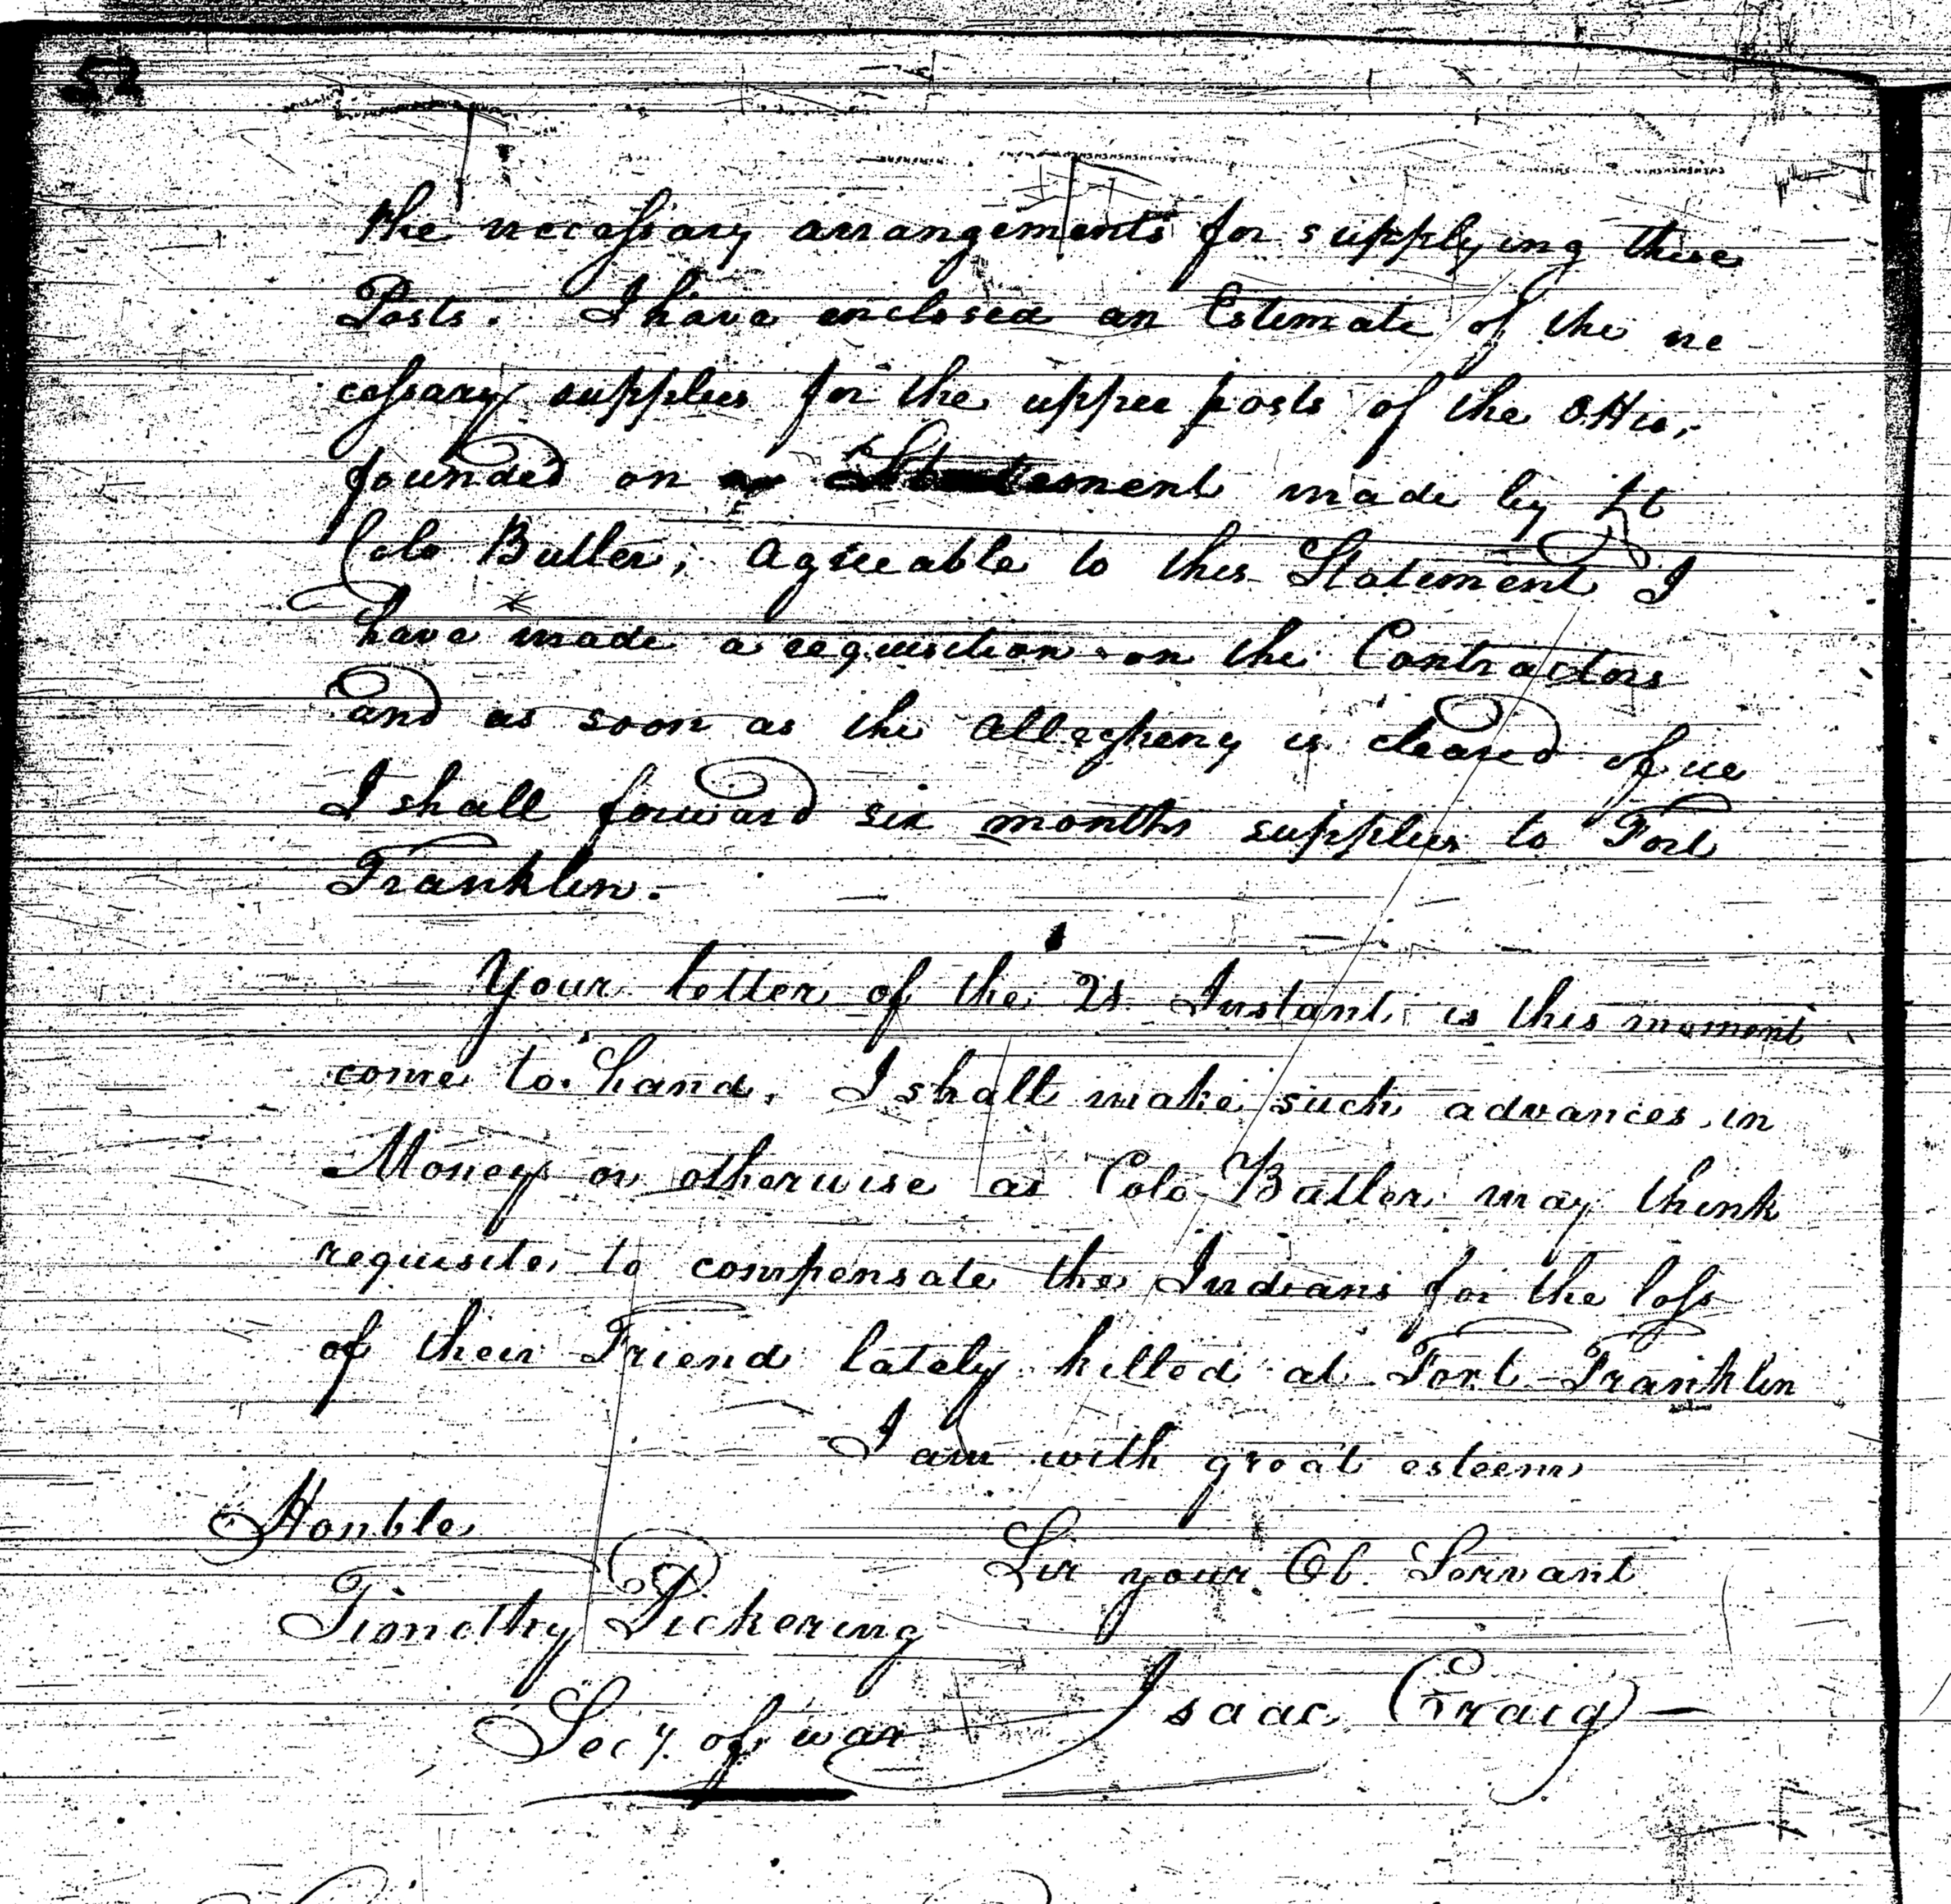 52
the necessary arrangements for supplying these
Posts. I have enclosed an Estimate of the ne
cessary supplies for the upper posts of the Ohio,
founded on a Statement made by Lt
Colo Butler; agreeable to this Statement I
have made a requisition on the Contractors
and as soon as the Allegheny is cleared of ice
I shall forward six months supplies to Fort
Franklin.
Your letter of the 21 Instant is this moment
come to hand. I shall make such advances in
Money or otherwise as Colo Butler may think
requisite to compensate the Indians for the loss
of their Friend lately killed at Fort Franklin
I am with great esteem
Honble
Sir your Ob. Servant
Timothy Pickering
Isaac Craig
Secy. of war